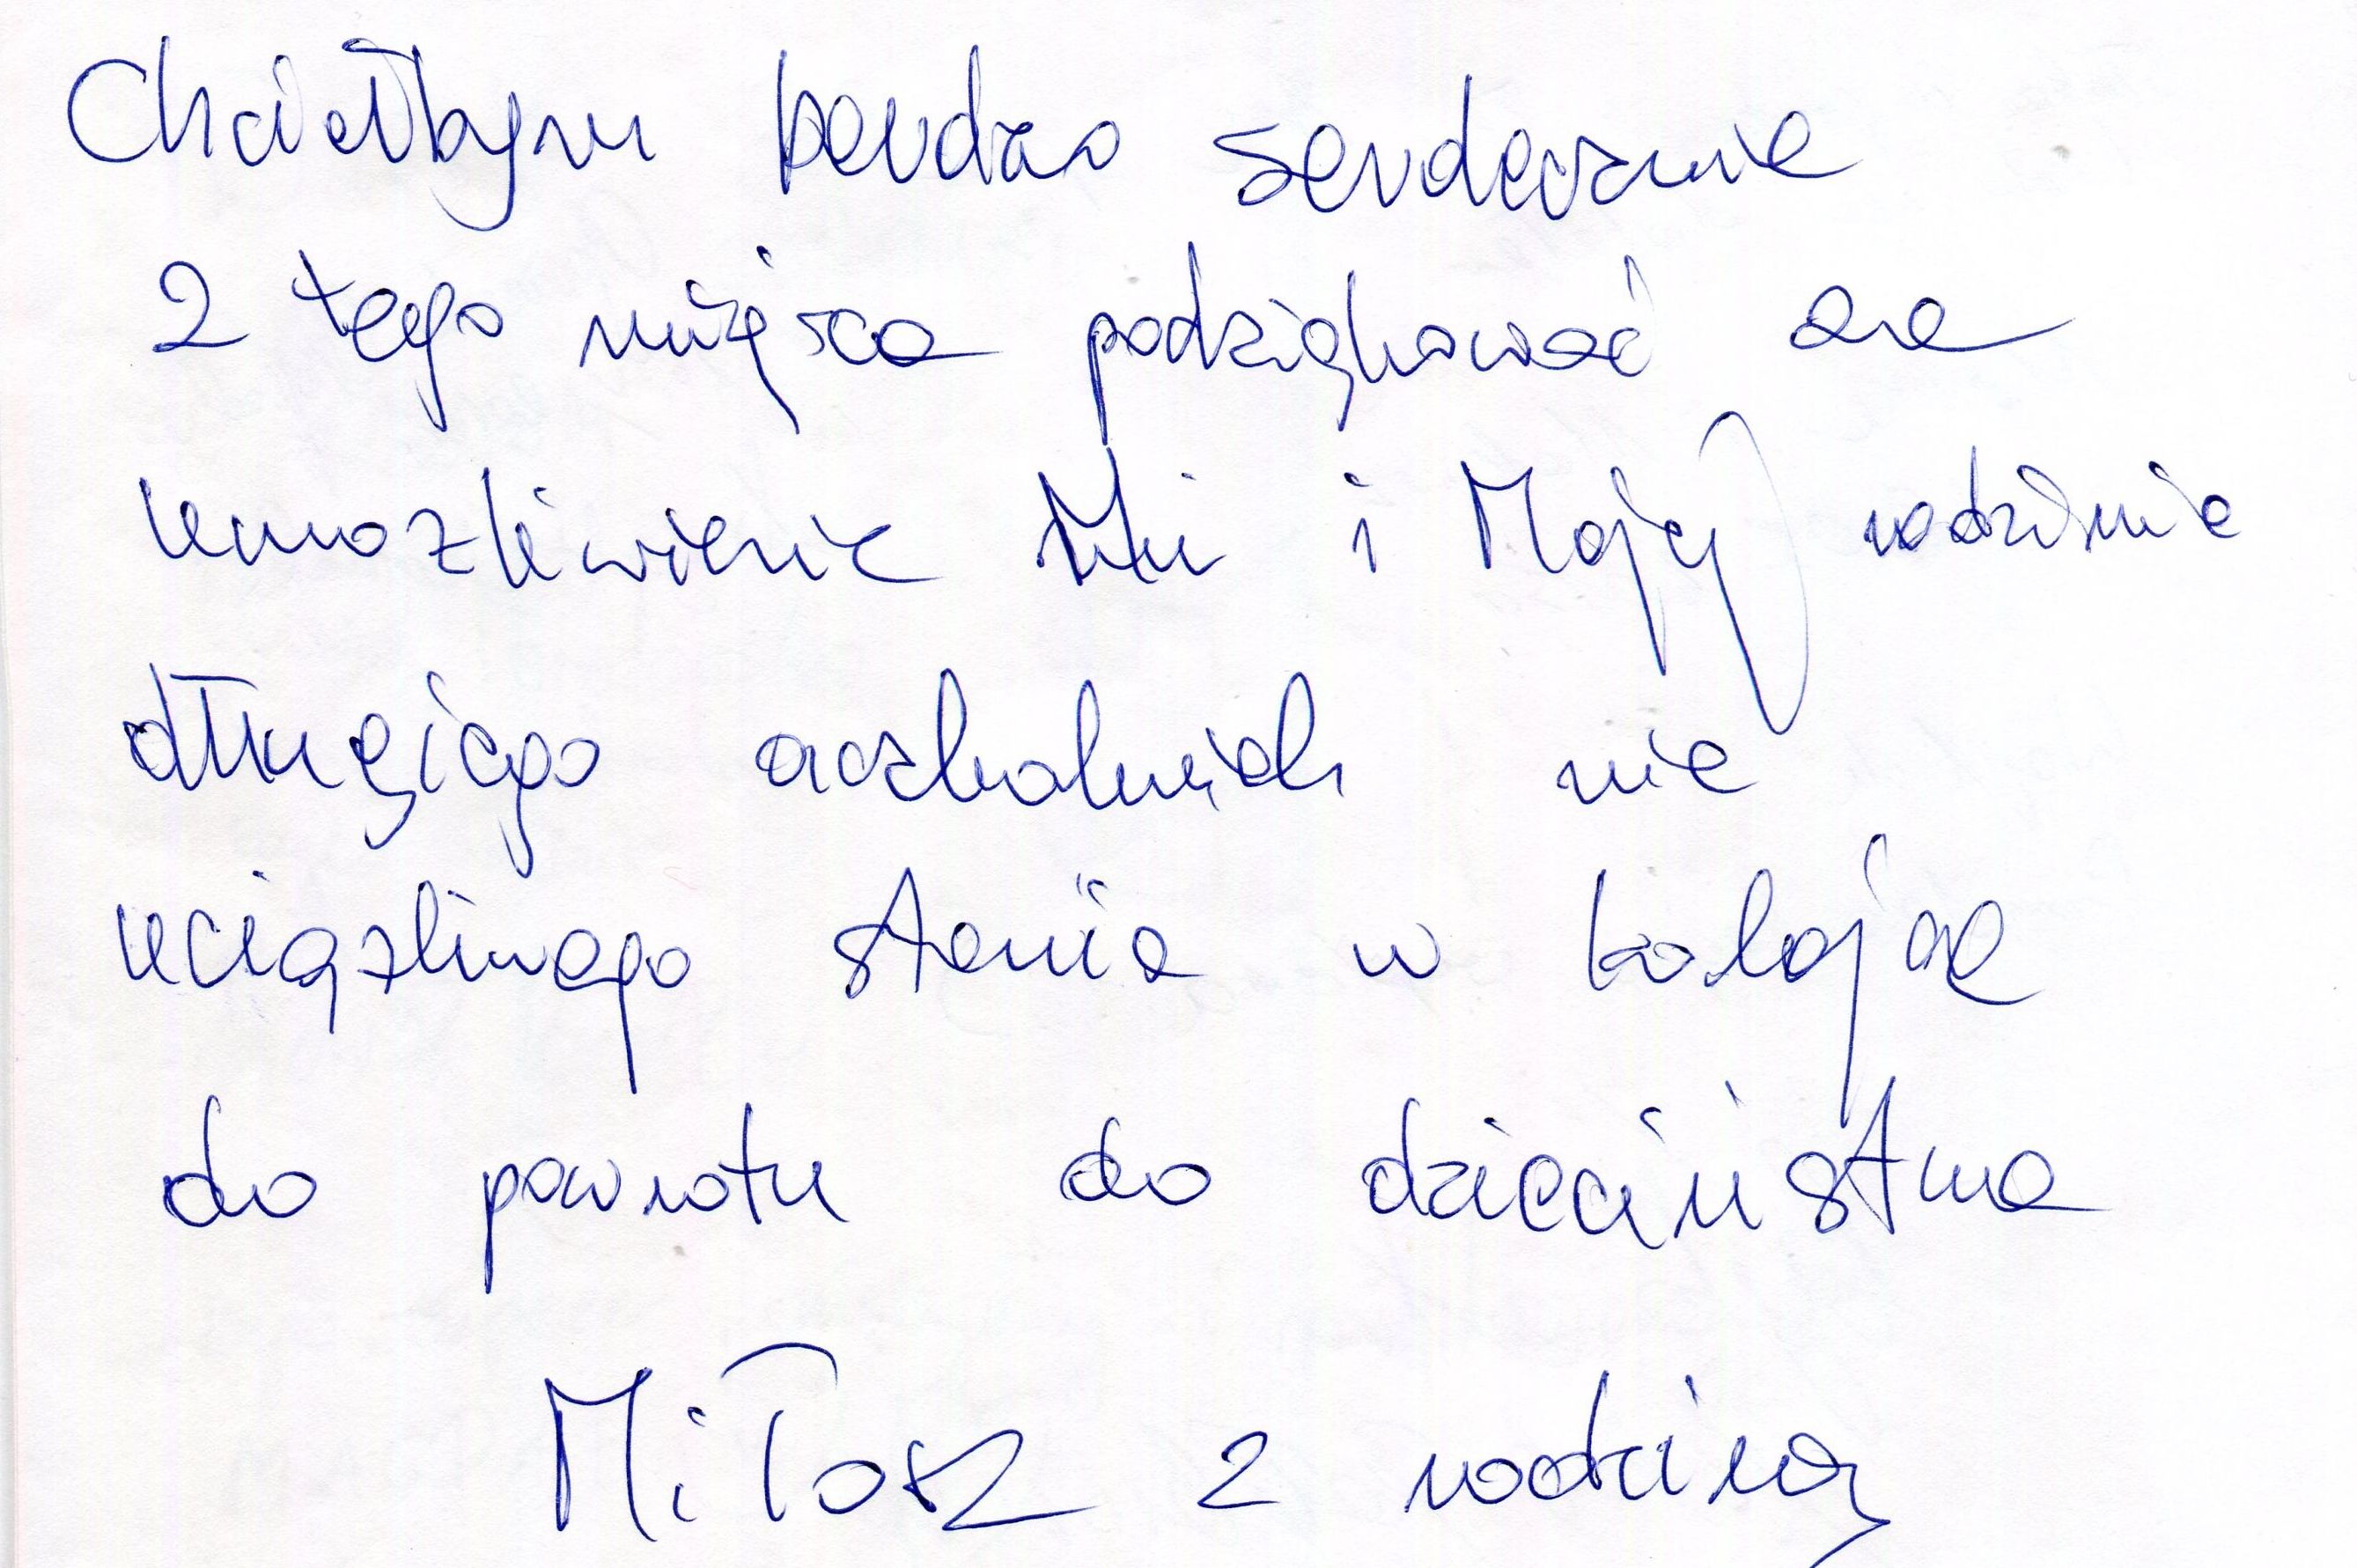 Chciałbym bardzo serdecznie
z tego miejsca podziękować za
umożliwienie Mi i Mojej rodzinie
długiego aczkolwiek nie
uciążliwego stania w kolejce
do powrotu do dzieciństwa
Miłosz z rodziną